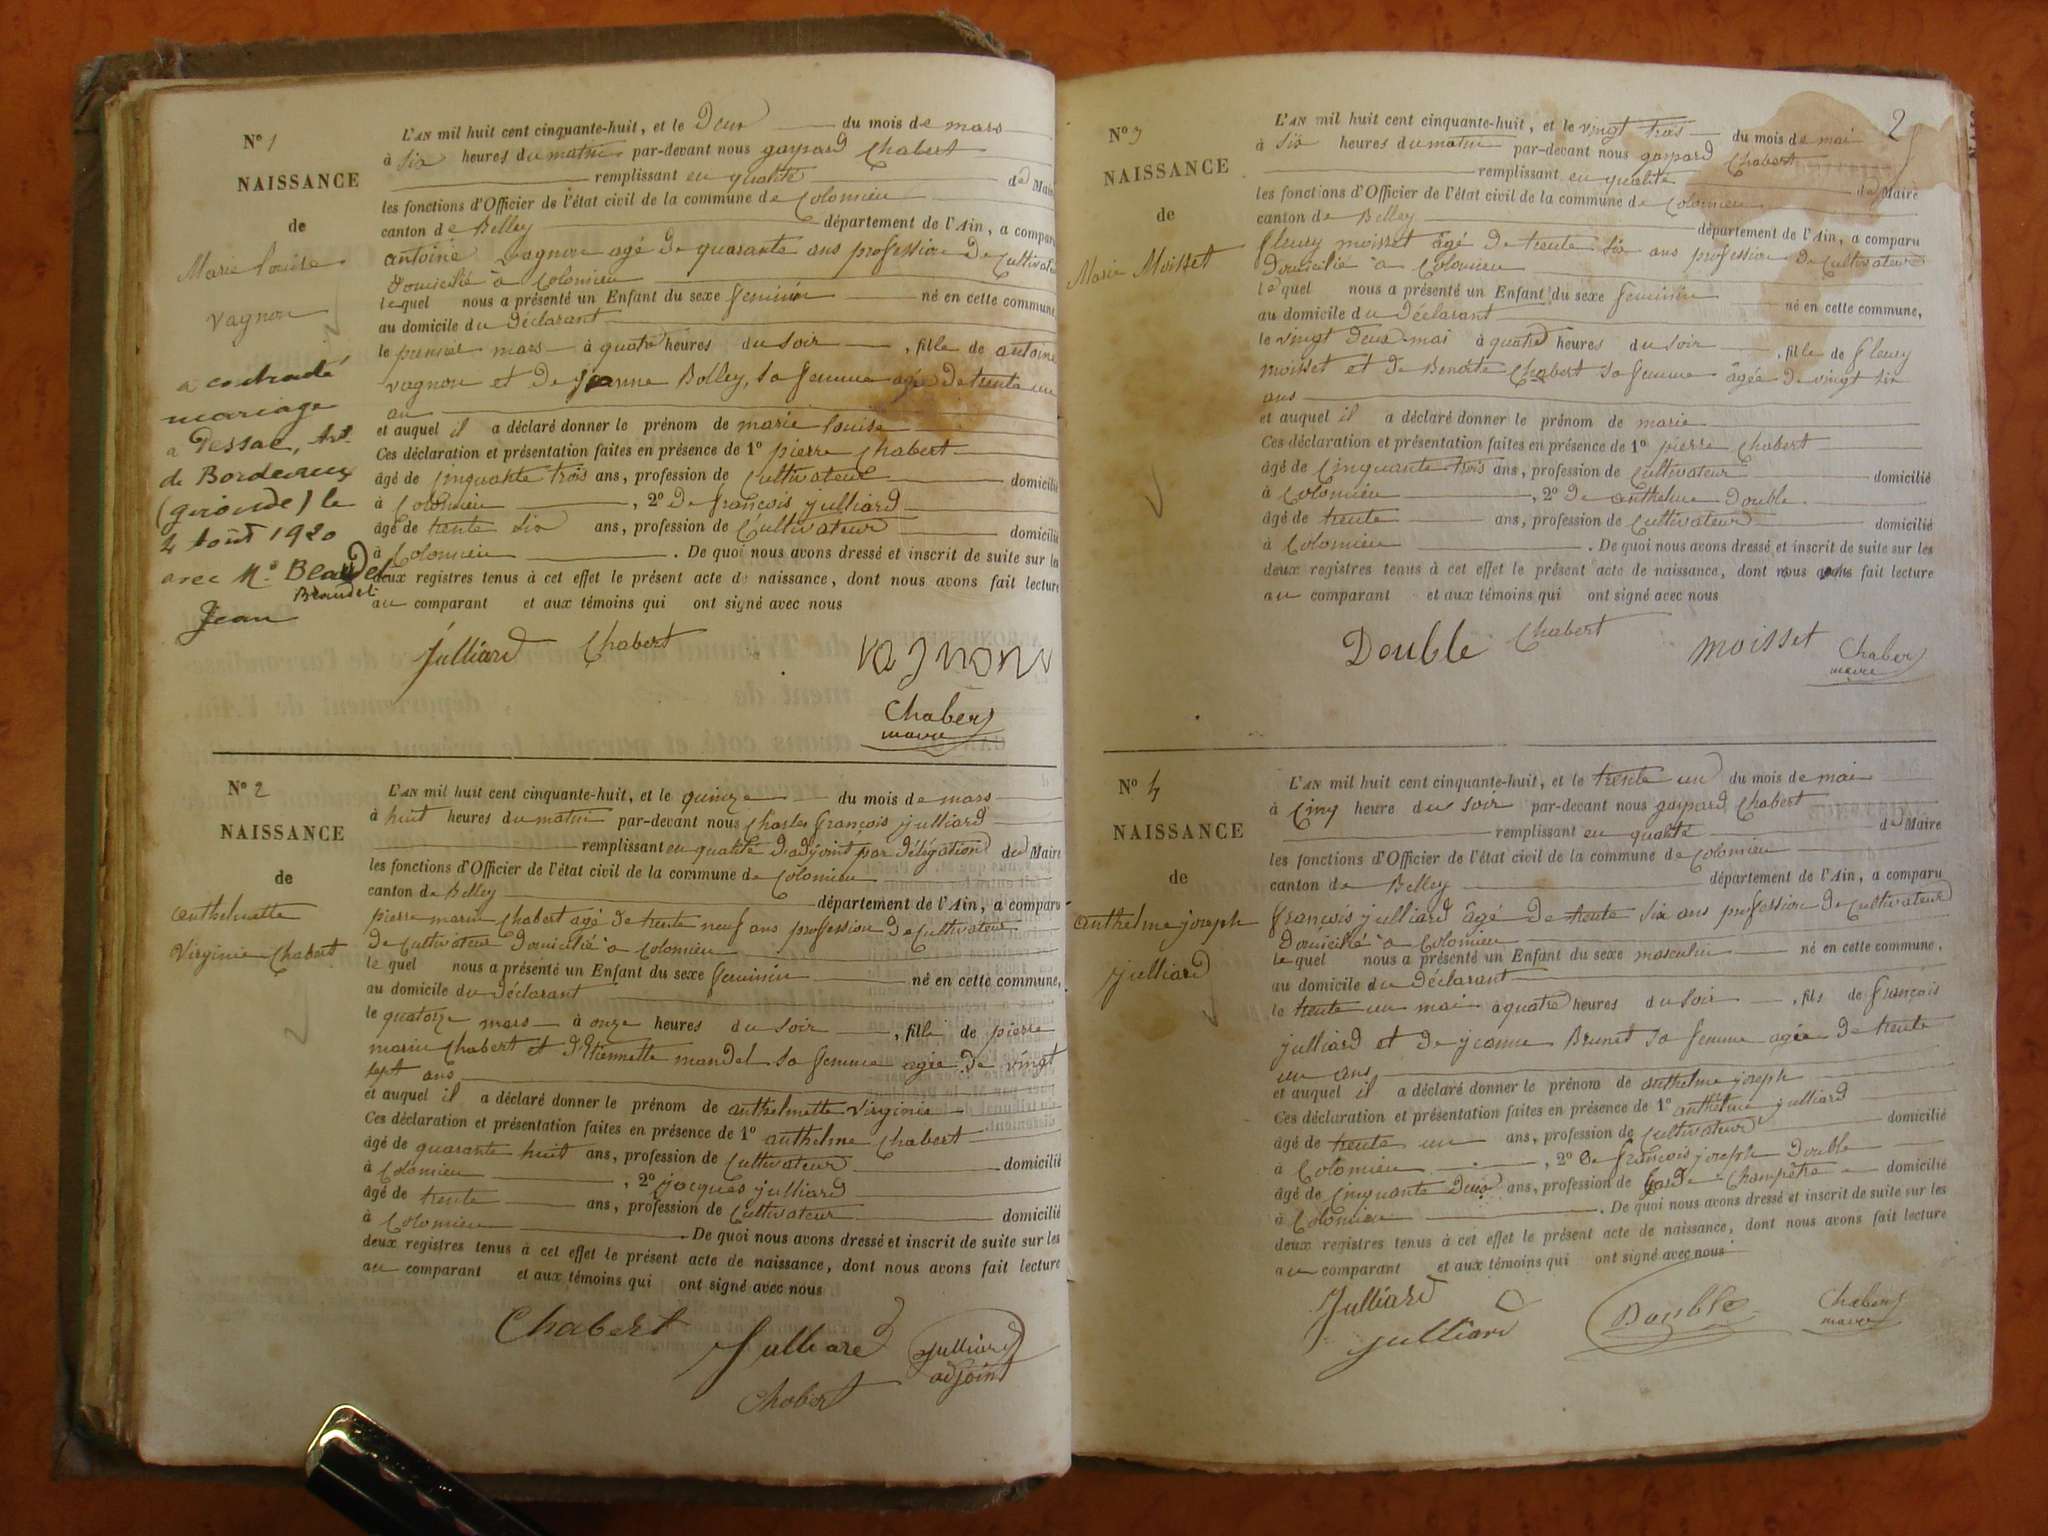 N° 1
NAISSANCE
de
Marie Louise
Vagnon
a contracté
mariage
a Pessac, Art.
de Bordeaux
(gironde) le
4 Août 1920
avec Mr. Beaudet
Beaudet
Jean
L'AN mil huit cent cinquante-huit, et le Deux du mois de mars
à Six heures du matin par-devant nous gaspard Chabert
remplissant en qualité de Maire
les fonctions d'Officier de l'état civil de la commune de Colomieu
canton de Belley département de l'Ain, a comparu
antoine Vagnon agé de quarante ans profession de Cultivateur
Domicilié à Colomieu
lequel nous a présenté un Enfant du sexe feminin né en cette commune,
au domicile du Déclarant
le premier mars à quatre heures du soir, fille de antoine
vagnon et de jeanne Bolley, sa femme agée de trente un
an
et auquel il a déclaré donner le prénom de marie louise
Ces déclaration et présentation faites en présence de 1° pierre Chabert
âgé de Cinquante trois ans, profession de Cultivateur domicilié
à Colomieu, 2° De françois julliard
âgé de trente Six ans, profession de Cultivateur domicilié
à Colomieu. De quoi nous avons dressé et inscrit de suite sur les
deux registres tenus à cet effet le présent acte de naissance, dont nous avons fait lecture
au comparant et aux témoins qui ont signé avec nous
Julliard Chabert vagnon
Chabert
maire
N° 2
NAISSANCE
de
Anthelmette
Virginie Chabert
L'AN mil huit cent cinquante-huit, et le quinze du mois de mars
à huit heures du matin par-devant nous Charles françois julliard
remplissant en qualité d'adjoint par délégation du Maire
les fonctions d'Officier de l'état civil de la commune de Colomieu
canton de Belley département de l'Ain, a comparu
pierre marin Chabert agé de trente neuf ans profession de Cultivateur
De Cultivateur Domicilié à Colomieu
lequel nous a présenté un Enfant du sexe feminin né en cette commune,
au domicile du Déclarant
le quatorze mars à onze heures du soir, fille de pierre
marin Chabert et d'Etiennette mandel sa femme agée de vingt
sept ans
et auquel il a déclaré donner le prénom de anthelmette virginie
Ces déclaration et présentation faites en présence de 1° anthelme Chabert
âgé de quarante huit ans, profession de Cultivateur domicilié
à Colomieu, 2° jacques julliard
âgé de trente ans, profession de Cultivateur domicilié
à Colomieu. De quoi nous avons dressé et inscrit de suite sur les
deux registres tenus à cet effet le présent acte de naissance, dont nous avons fait lecture
au comparant et aux témoins qui ont signé avec nous
Chabert Julliard julliard
adjoint
Chabert
2
N° 3
NAISSANCE
de
Marie Moisset
L'AN mil huit cent cinquante-huit, et le vingt trois du mois de mai
à Six heures du matin par-devant nous gaspard Chabert
remplissant en qualité de Maire
les fonctions d'Officier de l'état civil de la commune de Colomieu
canton de Belley département de l'Ain, a comparu
fleury moisset âgé de trente Six ans profession de Cultivateur
Domicilié à Colomieu
lequel nous a présenté un Enfant du sexe feminin né en cette commune,
au domicile du Déclarant
le vingt deux mai à quatre heures du soir, fille de fleury
moisset et de Benoite Chabert sa femme âgée de vingt six
ans
et auquel il a déclaré donner le prénom de marie
Ces déclaration et présentation faites en présence de 1° pierre Chabert
âgé de Cinquante trois ans, profession de Cultivateur domicilié
à Colomieu, 2° De anthelme Double
âgé de trente ans, profession de Cultivateur domicilié
à Colomieu. De quoi nous avons dressé et inscrit de suite sur les
deux registres tenus à cet effet le présent acte de naissance, dont nous avons fait lecture
au comparant et aux témoins qui ont signé avec nous
Double Chabert moisset Chabert
maire
N° 4
NAISSANCE
de
Anthelme joseph
julliard
L'AN mil huit cent cinquante-huit, et le trente un du mois de mai
à Cinq heure du soir par-devant nous gaspard Chabert
remplissant en qualité de Maire
les fonctions d'Officier de l'état civil de la commune de Colomieu
canton de Belley département de l'Ain, a comparu
françois julliard âgé de trente six ans profession de Cultivateur
Domicilié à Colomieu
lequel nous a présenté un Enfant du sexe masculin né en cette commune,
au domicile du Déclarant
le trente un mai à quatre heures du soir, fils de françois
julliard et de jeanne Brunet sa femme agée de trente
un ans
et auquel il a déclaré donner le prénom de anthelme joseph
Ces déclaration et présentation faites en présence de 1° anthelme julliard
âgé de trente un ans, profession de Cultivateur domicilié
à Colomieu, 2° De françois joseph Double
âgé de Cinquante Deux ans, profession de Garde Champêtre domicilié
à Colomieu. De quoi nous avons dressé et inscrit de suite sur les
deux registres tenus à cet effet le présent acte de naissance, dont nous avons fait lecture
au comparant et aux témoins qui ont signé avec nous
Julliard Double Chabert
julliard maire